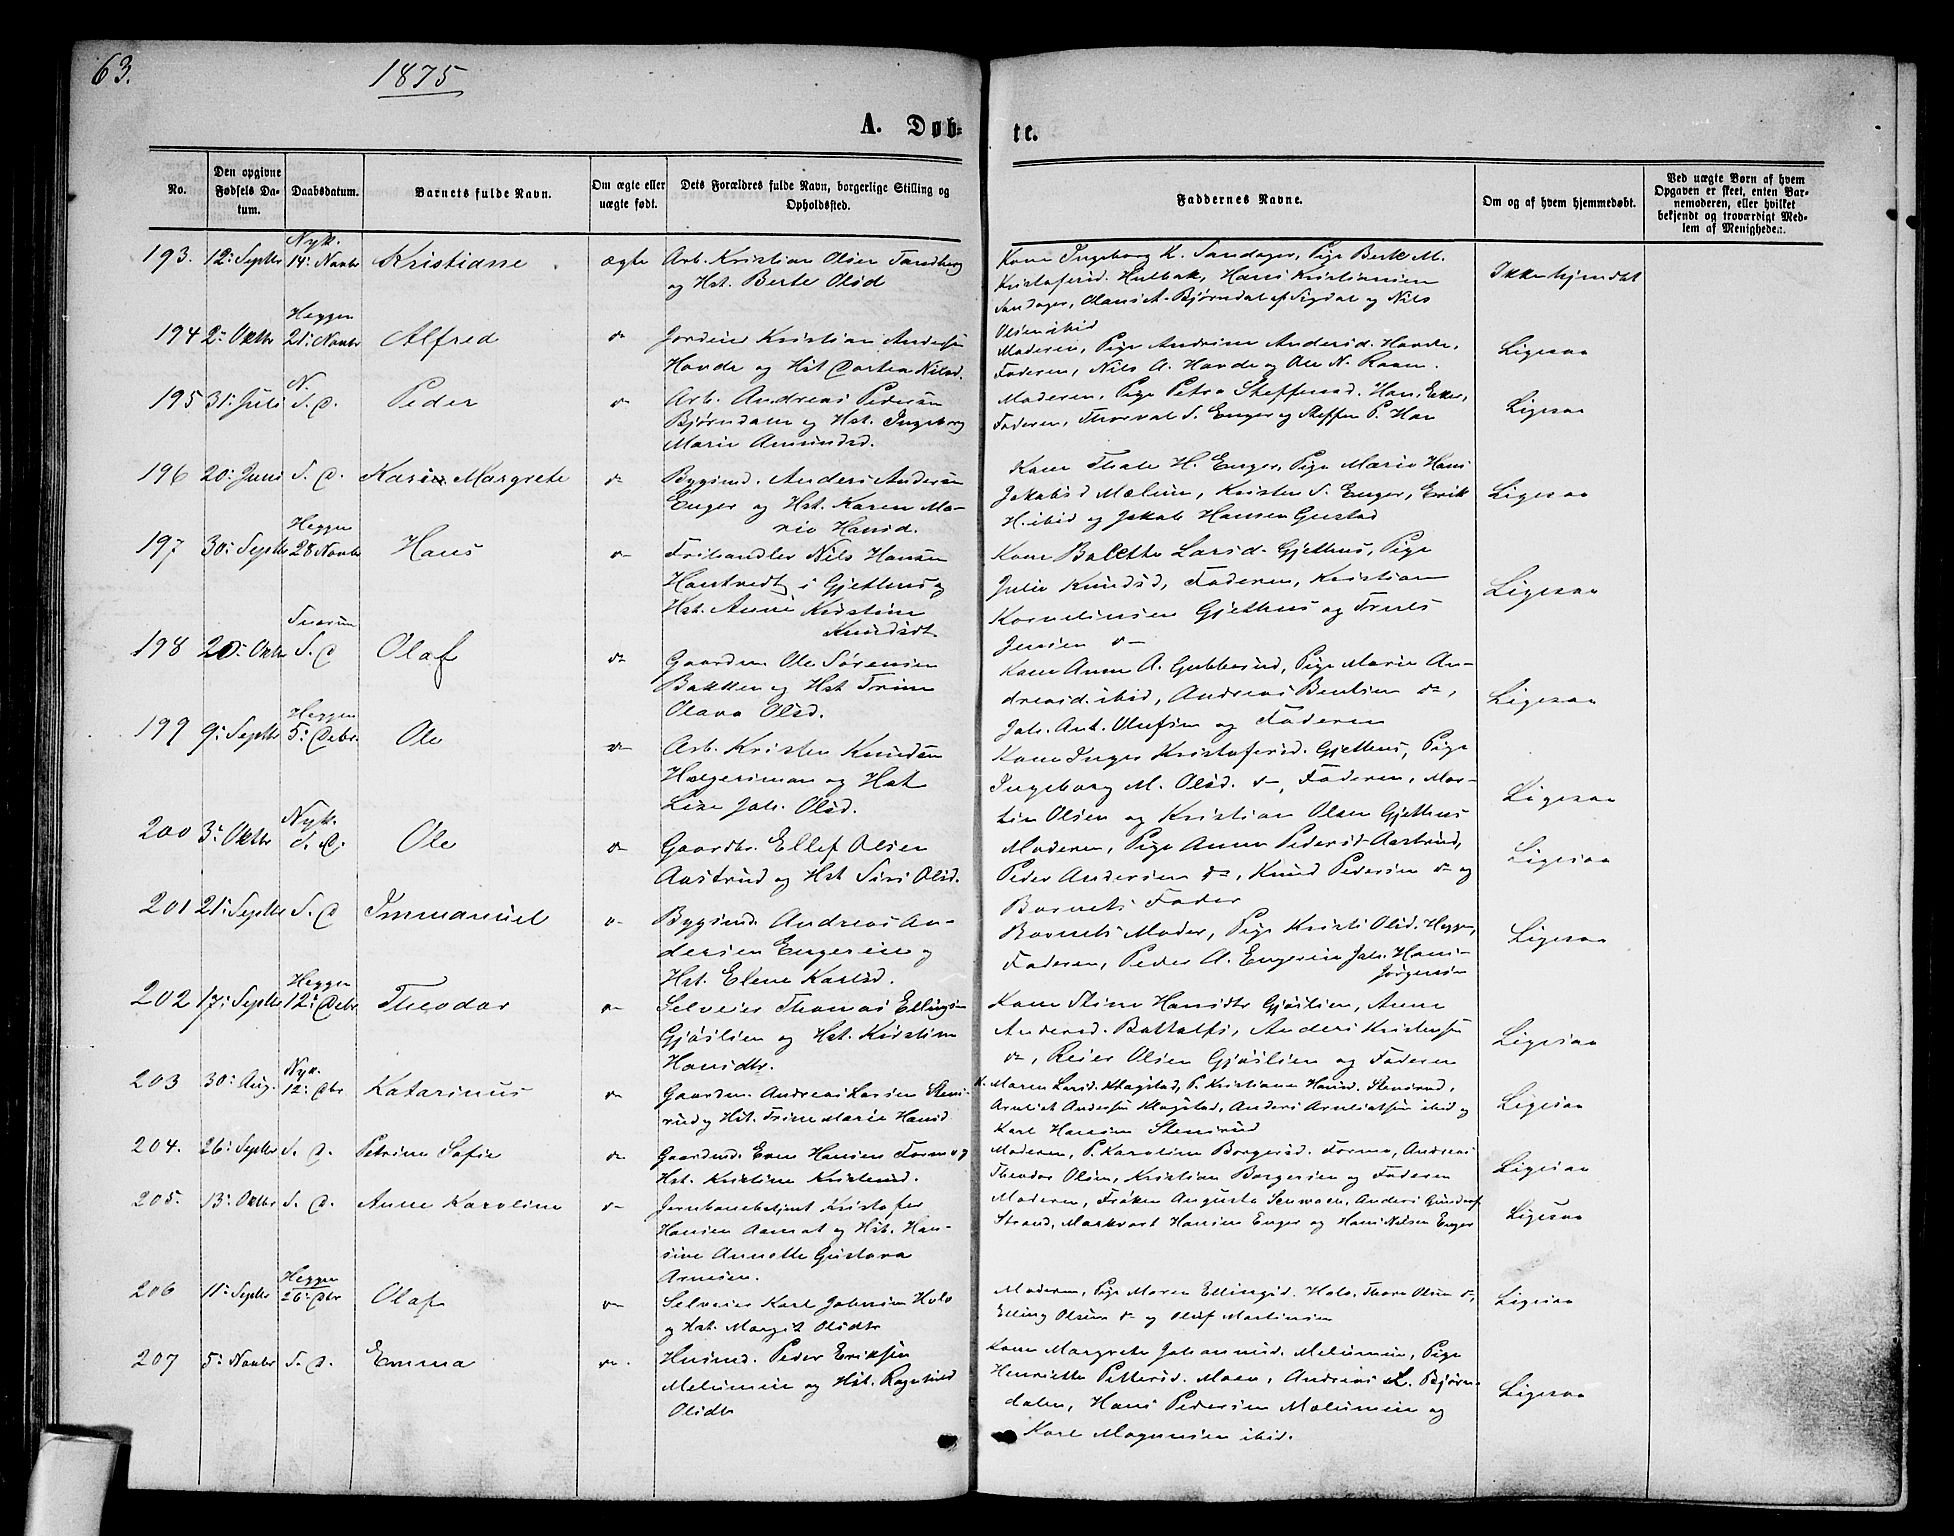 63.
1875
A. Døb-
te.
No.
Den opgivne Fødsels Datum.
Daabsdatum.
Barnets fulde Navn.
Om ægte eller uægte født.
Dets Forældres fulde Navn, borgerlige Stilling og Opholdssted.
Faddernes Navne.
Om og af hvem hjemmedøbt.
Ved uægte Børn af hvem Opgaven er skeet, enten Barnemoderen, eller hvilket bekjendt og troværdigt Medlem af Menigheden.
193. 12: Septbr Nyk. 14: Novbr Kristiane ægte
Arb. Kristian Olsen
og Hst. Berte Olsd
Kone Ingeborg K. Sandager, Pige Berte M.
Kristofersd. Hulbak, Hans Kristiansen
Sandager, Bjørndal af Sigdal og Nils
Olsen ibid
Ikke hjemdøbt
194 2: Oktbr Heggen 21: Novbr Alfred
Kristian Andersen
Hovde og Hst Dortea Nilsd.
Moderen, Pige Andrine Andersd. Hovde,
Faderen, Nils A. Hovde og Ole N. Raaen.
Ligesaa
195 31: Juli N. S. D. Peder
Arb. Andreas Pedersen
Bjørndalen og Hst. Ingeborg
Marie Amundsd.
Moderen, Pige Petra Steffensd. Hon, Eker,
Faderen, Thorval S. Enger og Steffen P. Hon
Ligesaa
196 20: Juni S. D. Karen Margrete
Bygsmd. Anders Andersen
Enger og Hst. Karen Ma-
rie Hansd.
Kone Thale H. Enger, Pige Marie Hans
Jakobsd Mælum, Kristen S. Enger, Erik
H. ibid og Jakob Hansen Gustad
Ligesaa
197 30: Septbr Heggen 28 Novbr Hans
Frihandler Nils Hansen
Hontvedt i Gjethus og
Hst. Anne Kristine
Knudsdt.
Kone Bolette Larsd. Gjethus, Pige
Julie Knudsd, Faderen, Kristian
Kornelinsen Gjethus og Truls
Jensen
Ligesaa
198 20: Oktbr Snarum S. D Olaf
Gaardm. Ole Sørensen
Bakken og Hst Trine
Olava Olsd.
Kone Anne A. Gubberud, Pige Marie An-
dreasd. ibid, Andreas Bentsen
Joh. Ant. Olufsen og Faderen
Ligesaa
199 9: Septbr Heggen 5: Debr. Ole
Arb. Kristen Knudsen
Holgersmoen og Hst
Lise Joh. Olsd.
Kone Inger Kristofersd. Gjethus, Pige
Ingeborg M. Olsd. Faderen, Mar-
tin Olsen og Kristian Olsen Gjethus
Ligesaa
200 3: Oktbr Nyk. S. D. Ole
Gaardbr. Ellef Olsen
Aastrud og Hst Siri Olsd.
Moderen, Pige Anne Pedersd Aastrud,
Peder Andersen Knud Pedersen og
Barnets Fader
Ligesaa
201 21: Septbr S. D Immanuel
Bygsmd. Andreas An-
dersen Engereie og
Hst. Elene Karlsd.
Barnets Moder, Pige Kristi Olsd. Heggen,
Faderen, Peder A. Engereie Joh. Hans
Jørgensen
Ligesaa
202 17: Septbr Heggen 12: Debr Theodor
Selveier Thomas Ellingsen
Gjøslien og Hst. Kristine
Hansdtr.
Kone Stine Hansdtr Gjøslien, Anne
Andersd. Anders Kristensen
Reier Olsen Gjøslien og Faderen
Ligesaa
203 30: Aug. Nyk. 12: Dbr Katarinus
Gaardm. Andreas Larsen Stens-
rud og Hst. Trine Marie Hansd
K. Maren Larsd. Kløgstad, P. Kristiane Hansd. Stensrud,
Andersen Anders ibid og
Karl Hansen Stensrud
Ligesaa
204. 26: Septbr S. D. Petrine Sofie
Gaardmd. Even Hansen Formo og
Hst. Kristine Kristensd.
Moderen, P. Karoline Borgersd. Formo, Andreas
Theodor Olsen, Kristian Borgersen og Faderen
Ligesaa
205. 13: Oktbr S. D. Anne Karoline
Jernbanebetjent Kristofer
Hansen Aamot og Hst. Han-
sine Annette Gustava
Arnesen.
Moderen, Frøken Augusta Anders
Strand, Markvart Hansen Enger og Hans Nilsen Enger
Ligesaa
206 11: Septbr Heggen 26: Dbr Olaf
Selveier Karl Johnsen Hole
og Hst. Margit Olsdtr
Moderen, Pige Maren Ellingsd. Hole, Thore Olsen
Elling Olsen og Oluf Martinsen
Ligesaa
207 5: Novbr S. D. Emma
Husmd. Peder Eriksen
Melumeie og Hst. Ragnhild
Olsdtr
Kone Margrete Johannesd. Melumeie, Pige
Henriette Pettersd. Moen, Andreas L. Bjørn-
dalen, Hans Pedersen Melumeie og
Karl Mogensen ibid.
Ligesaa